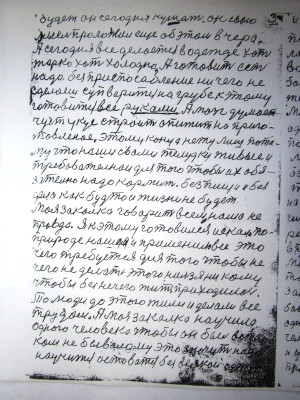 будет он сегодня кушат. он свою
мыслю проложил еще об этом в чера.
А сегодня все делается в одежде хоть
жарко хоть холодно. А готовить есть
надо. без приспособление ни чего не
сделаеш утварить на грубе к этому
готовить все руками. А мозг думает
чуит вкус строит опитит на приго-
товленое. Этому конца нету
му что нашы своими телу живые и
требователная для того чтобы их обя-
зателно надо кормит. без пищи и без
дела как будто и жизни не будет.
Моя закалка говарит все у нашо не
правда. Я к этому готовился искал по
природе нашол и применил все это
чего требуется для того чтобы не
чего не делат этого низя никому
чтобы без нечего жит приходилос.
То люди до этого жили и делали все
трудом. А моя закалка научила
одного человека чтобы он был
ком не бывалому это значит над
научит остоват без всякой